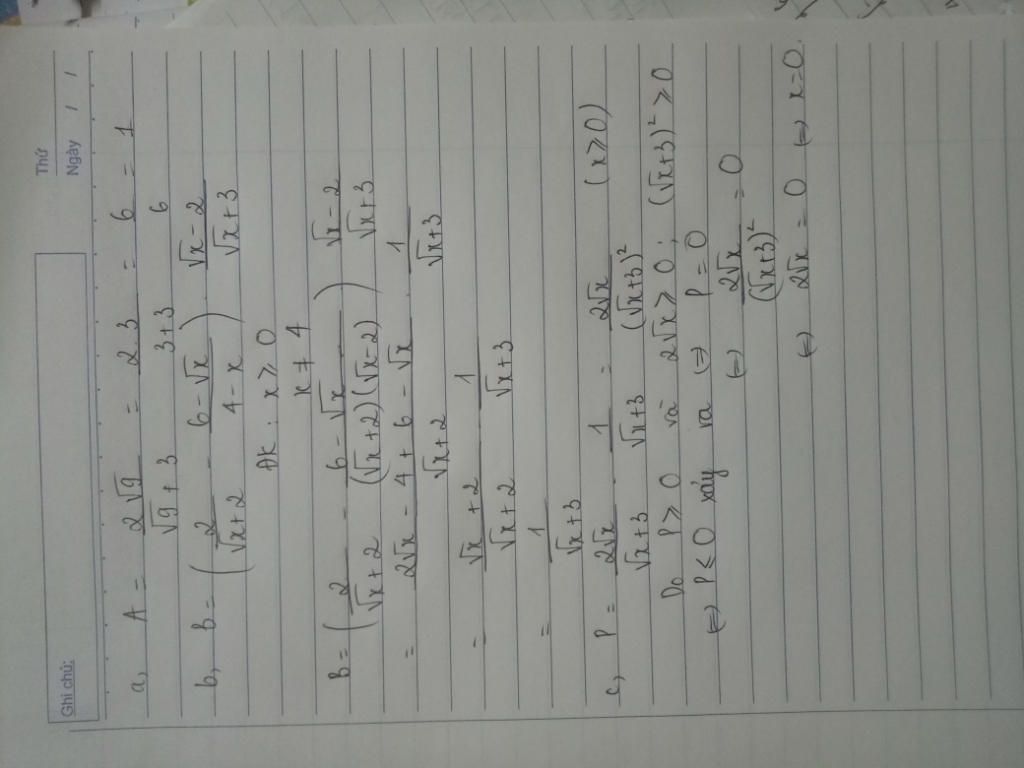 Thứ
Ghi chú:
Ngày / /
a, A = 2√9 / (√9 + 3) = 2.3 / (3+3) = 6/6 = 1
b, B = (2 / (√x+2) - (6-√x) / (4-x)) . (√x-2) / (√x+3)
ĐK : x ≥ 0
x ≠ 4
B = (2 / (√x+2) - (6-√x) / ((√x+2)(√x-2))) . (√x-2) / (√x+3)
= (2√x - 4 + 6 - √x) / (√x+2) . 1 / (√x+3)
= (√x+2) / (√x+2) . 1 / (√x+3)
= 1 / (√x+3)
c, P = 2√x / (√x+3) . 1 / (√x+3) = 2√x / (√x+3)² (x ≥ 0)
Do P ≥ 0 và 2√x ≥ 0 ; (√x+3)² ≥ 0
(=) P ≤ 0 xảy ra (=) P = 0
(=) 2√x / (√x+3)² = 0
(=) 2√x = 0 (=) x = 0.